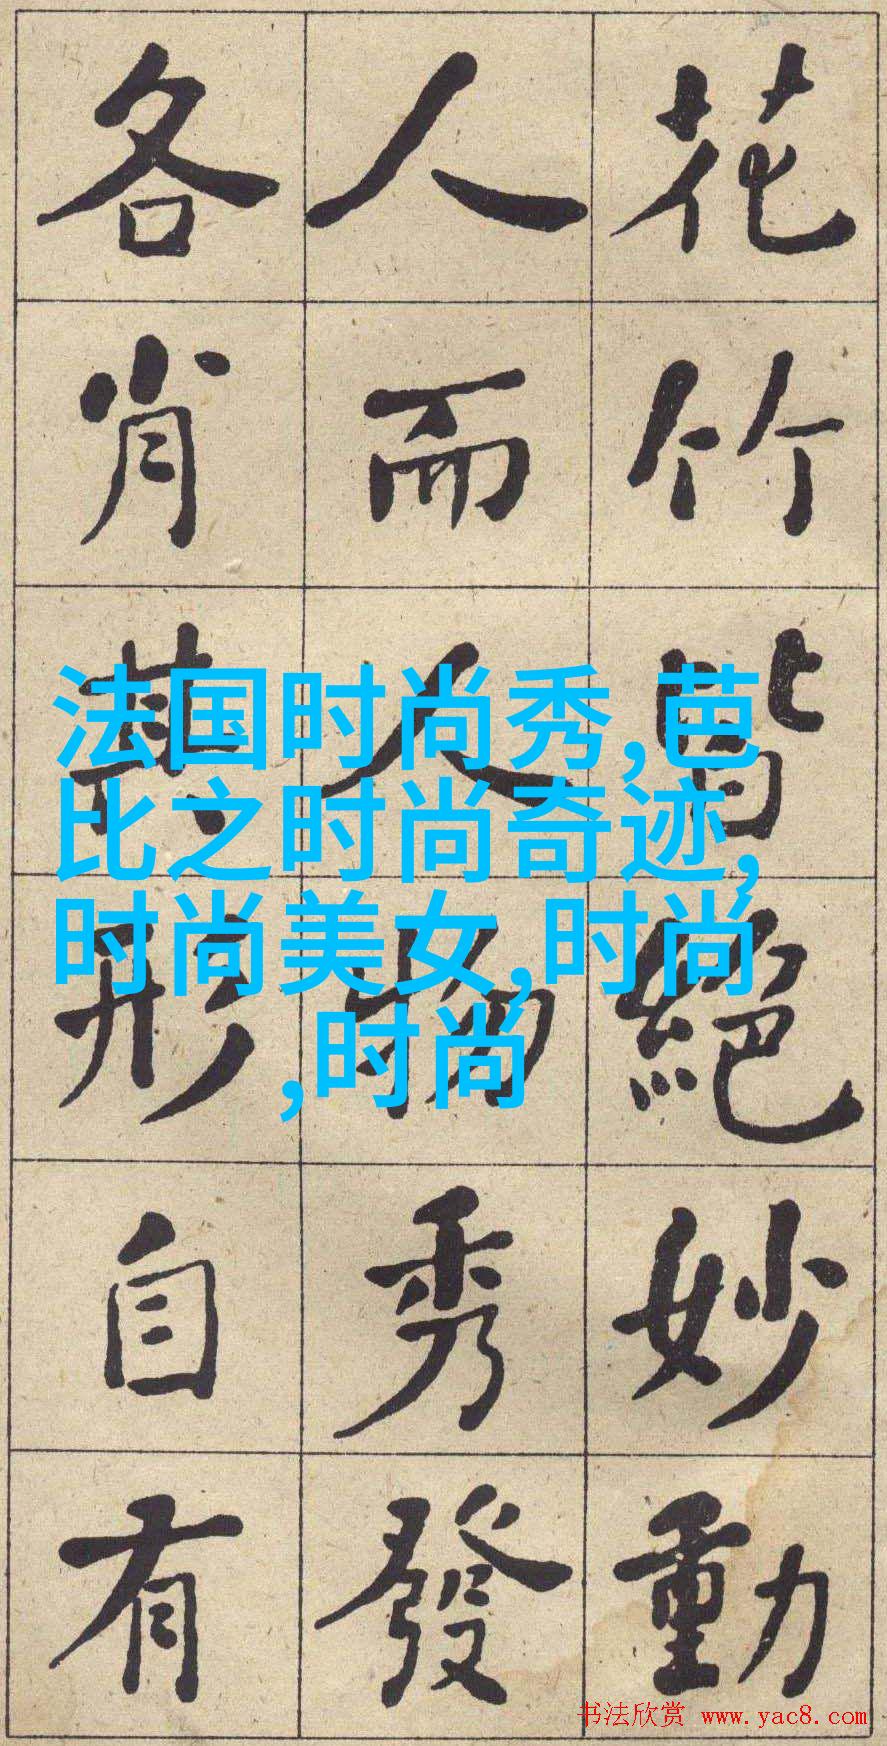 花竹皆絕妙動
人而人物秀發
各肖其形自有
法国时尚秀,芭
比之时尚奇迹,
时尚美女,时尚
,时尚
书法欣赏 www.yac8.com